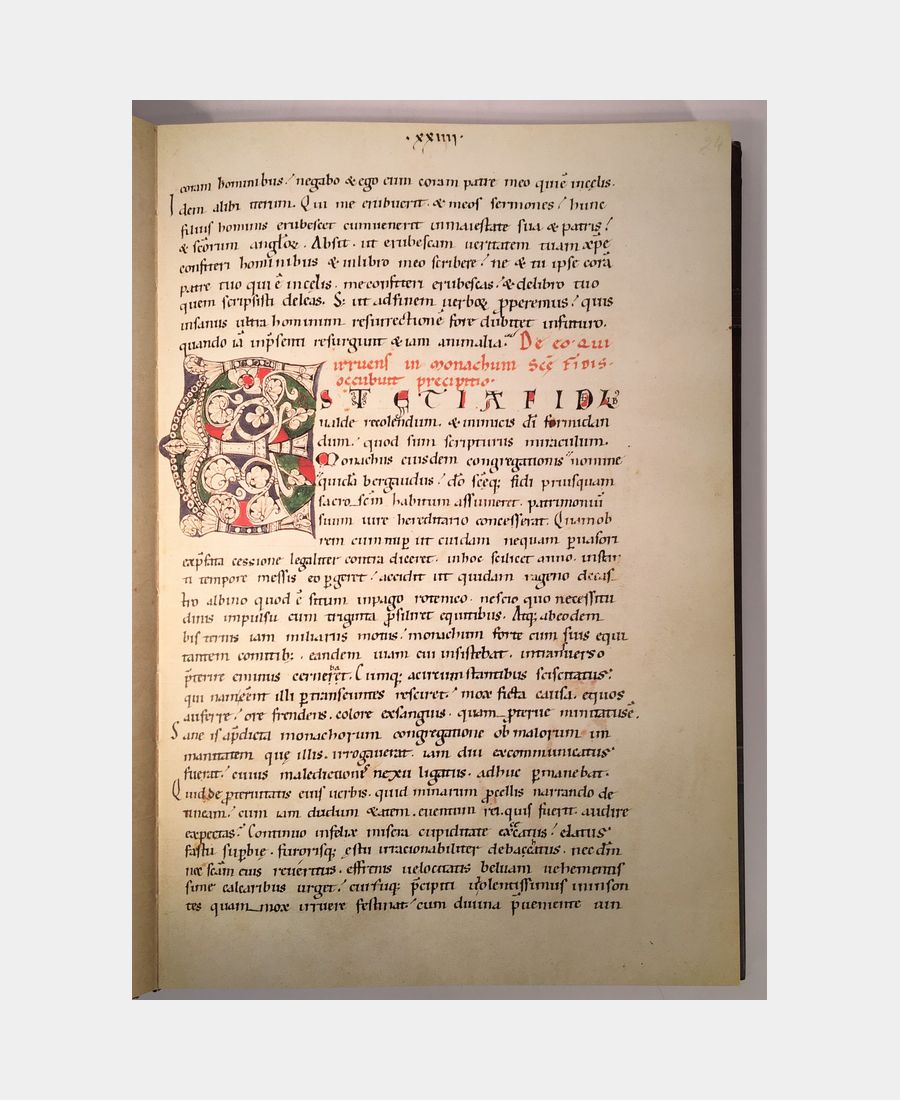 ·xxiiii·
24
coram hominibus / negabo & ego eum coram patre meo qui ē in celis.
Idem alibi iterum. Qui me erubuerit. & meos sermones / hunc
filius hominis erubescet cum uenerit in maiestate sua & patris /
& scōrum anglоꝝ. Absit. ut erubescam ueritatem tuam xp̄e
confiteri hominibus & in libro meo scribere / ne & tu ipse corā
patre tuo qui ē in celis. me confiteri erubescas / & de libro tuo
quem scripsisti deleas. S; ut ad finem uerboꝝ ꝓperemus / quis
insanus ultra hominum resurrectionē fore dubitet in futuro.
quando iā in p̄senti resurgunt & iam animalia. De eo qui
irruens in monachum Scē Fidis.
occubuit precipitio.
EST ETIA FIDI
ualde recolendum. & inimicis dī formidan
dum. quod sum scripturus miraculum.
Monachus eiusdem congregationis nomine
quidā bergandus / dō scēq; fidi priusquam
sacro scm habitum assumeret. patrimoniū
suum iure hereditario concesserat. Quam ob
rem cum nuꝑ ut cuidam nequam ꝑuasori
exp̄fata cessione legaliter contra diceret. in hoc scilicet anno. instan
ti tempore messis eo ꝑgeret / accidit ut quidam rageno de cas
tro albino quod ē situm in pago rotenico. nescio quo necessitu
dinis impulsu cum triginta p̄siliret equitibus. Atq; ab eodem
bis ternis iam miliariis motus / monachum forte cum suis equi
tantem comitib;. eandem uiam cui insistebat. in transuerso
p̄terire eminus cernebat. Cumq; a circumstantibus sciscitatus /
qui nam eent illi ꝑtranseuntes resciret / mox ficta causa. equos
auferre / ore frendens. colore exsanguis. quam ꝓterue minitatus ē.
Sane is ap̄dicta monachorum congregatione ob malorum in
manitatem que illis irrogauerat. iam diu excommunicatus
fuerat / cuius maledictionis nexu ligatus. adhuc ꝑmanebat.
Quid de ꝓteruitatis eius uerbis. quid minarum ꝓcellis narrando de
tineam / cum iam dudum & atem. euentum rei. quis fuerit. audire
expectas. Continuo infelix misera cupiditate excecatus / elatus
fastu suꝑbie. furorisq; estu irracionabiliter debaccatus. nec dīn
nec scām eius reueritus. effrenis uelocitatis beluam uehementis
sime calcaribus urget / cursuq; p̄cipiti uiolentissimus in inson
tes quam mox irruere festinat / cum diuina p̄ueniente uin